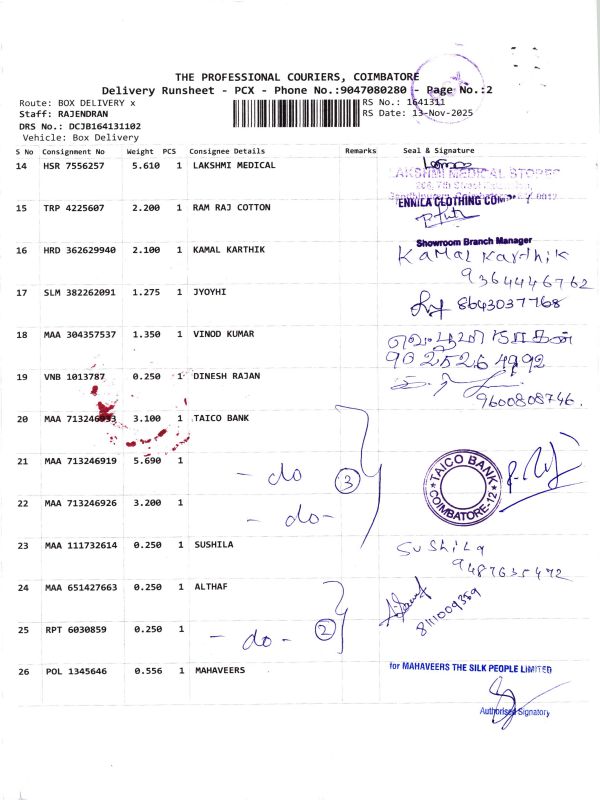 THE PROFESSIONAL COURIERS, COIMBATORE
Delivery Runsheet - PCX - Phone No.:9047080280 - Page No.:2
Route: BOX DELIVERY x
RS No.: 1641311
Staff: RAJENDRAN
RS Date: 13-Nov-2025
DRS No.: DCJB164131102
Vehicle: Box Delivery
S No Consignment No Weight PCS Consignee Details Remarks Seal & Signature
14 HSR 7556257 5.610 1 LAKSHMI MEDICAL
LAKSHMI MEDICAL STORES
15 TRP 4225607 2.200 1 RAM RAJ COTTON
ENNILA CLOTHING COMPANY
Showroom Branch Manager
16 HRD 362629940 2.100 1 KAMAL KARTHIK
Kamal Karthik
9364446762
17 SLM 382262091 1.275 1 JYOYHI
8643037768
18 MAA 304357537 1.350 1 VINOD KUMAR
9025264992
19 VNB 1013787 0.250 1 DINESH RAJAN
9600808746.
20 MAA 713246933 3.100 1 TAICO BANK
21 MAA 713246919 5.690 1
- do
3
TAICO BANK
COIMBATORE-12
22 MAA 713246926 3.200 1
- do -
23 MAA 111732614 0.250 1 SUSHILA
Sushila
9487635472
24 MAA 651427663 0.250 1 ALTHAF
8111009389
25 RPT 6030859 0.250 1
- do -
2
26 POL 1345646 0.556 1 MAHAVEERS
for MAHAVEERS THE SILK PEOPLE LIMITED
Authorised Signatory